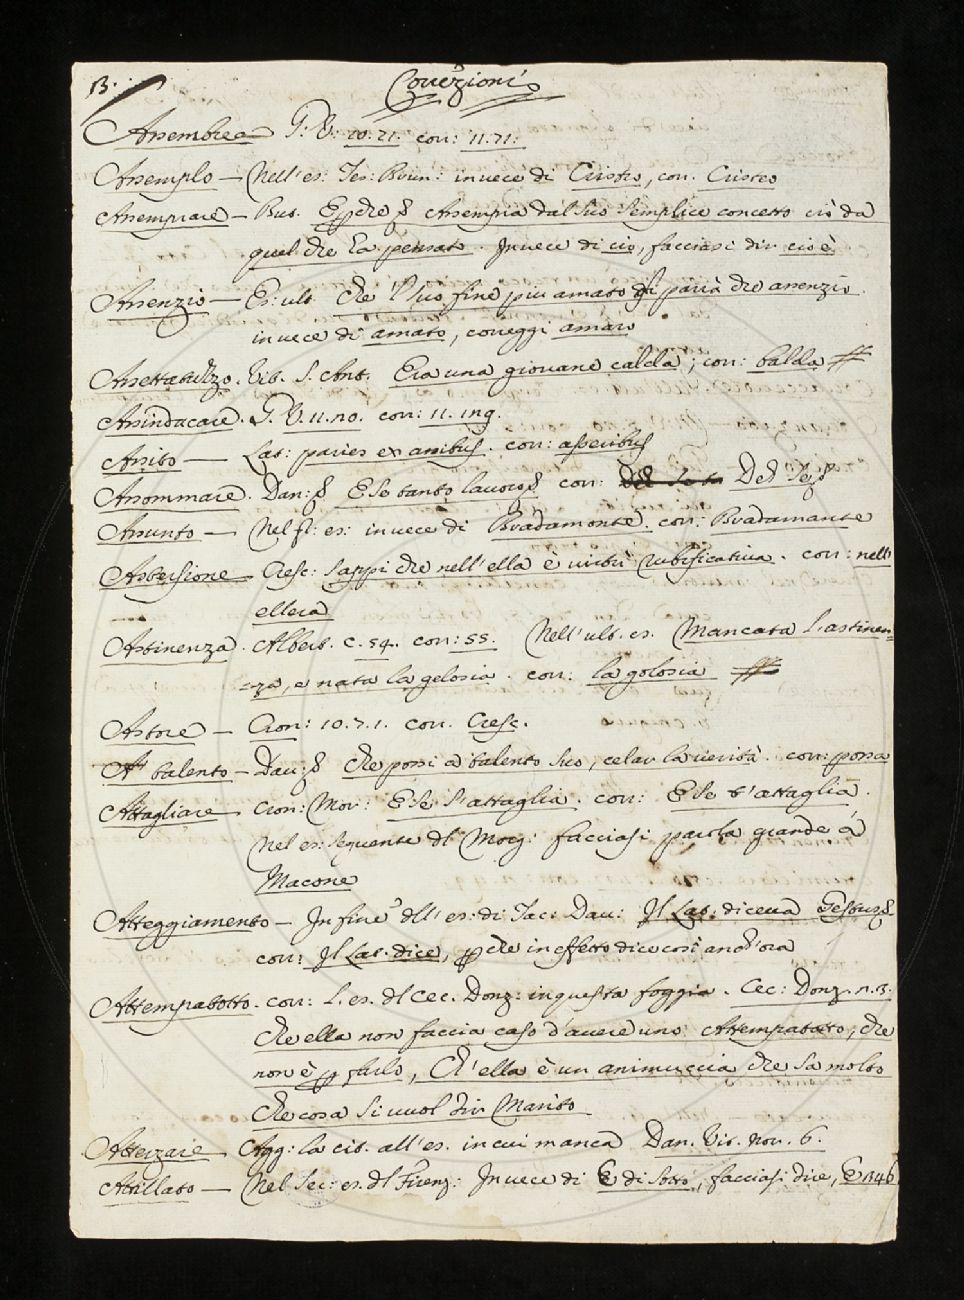 13. Correzioni
Assembrea G: V: 10. 21. corr: 11. 71.
Assemplo — Nell'es: Tes: Brun: invece di Cristio, corr. Cristeo
Assemprare — But. E però Assempra dal suo semplice concetto ciò da
quel che la pensato. Invece di ciò, facciasi dir cioè
Assenzio — Es: ult. Che 'l suo fine più amato gli parià che assenzio.
invece di amato, correggi amaro
Assettatuzzo. Vit. S. Ant. Era una giovane calda; corr: balda
Assindacare. G. V. 11. no. corr: 11. 119.
Assito — Lat: paries ex assibus. corr: asseribus
Assommare. Dan: E se tanto lavoro corr:
Assunto — Nel pr. es: invece di Bradamonte. corr: Bradamante
Astersione Cresc: Sappi che nell'ella è virtù rubificativa. corr: nell'
ellera
Astinenza. Albert. C. 54. corr: 55. Nell'ult. es. Mancata l'astinen-
=za, e nata la gelosia. corr: la golosia
Astore — Cron: 10. 7. 1. corr. Cresc.
A talento — Dav: Che possi a talento suo, celar la verità. corr: possa
Attagliare Cron: Mor: E se s'attaglia. corr: E se t'attaglia.
Nel es: seguente del Morg: facciasi parola grande a
Macone
Atteggiamento — In fine dell'es: di Tac: Dav: Il Lat. diceva
corr: Il Lat. dice, perchè in effetto dice così ancor'ora
Attempatotto. corr: l'es. del Cec. Donz: in questa foggia. Cec: Donz. n. 13.
Che ella non faccia caso d'avere uno Attempatoto, che
non è per farlo, Ch'ella è un animuccia che sa molto
che cosa si vuol dir Marito
Atterzare Agg: la cit. all'es. in cui manca Dan. Vit. nov. 6.
Attillato — Nel sec: es. del Firenz: Invece di E di sotto, facciasi dire, E 146